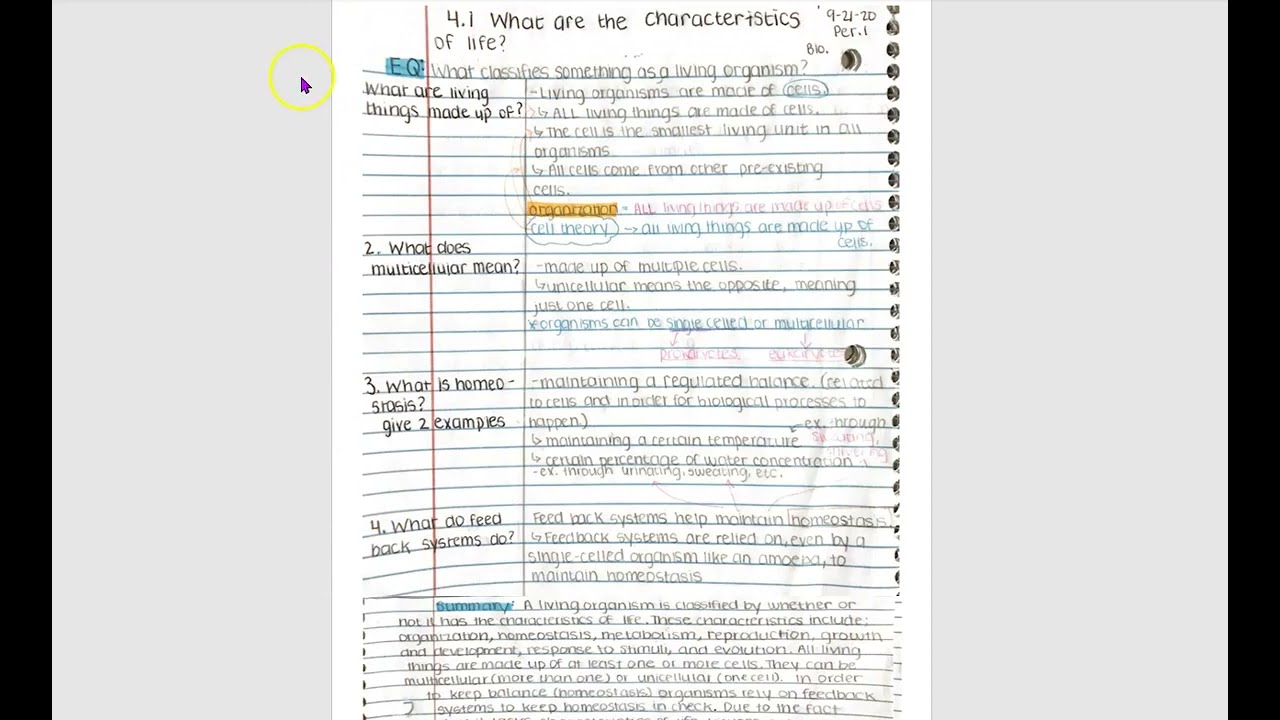 4.1 What are the characteristics
of life?
9-21-20
Per.1
Bio.
EQ: What classifies something as a living organism?
What are living
things made up of?
-Living organisms are made of cells.
↳ ALL living things are made of cells.
↳ The cell is the smallest living unit in all
organisms
↳ All cells come from other pre-existing
cells.
organization - ALL living things are made up of cells
cell theory → all living things are made up of
cells.
2. What does
multicellular mean?
-made up of multiple cells.
↳unicellular means the opposite, meaning
just one cell.
*organisms can be single celled or multicellular
prokaryotes eukaryotes
3. What is homeo-
stasis?
give 2 examples
-maintaining a regulated balance. (related
to cells and in order for biological processes to
happen.)
↳ maintaining a certain temperature
ex. through
↳ certain percentage of water concentration
-ex. through urinating, sweating, etc.
4. What do feed
back systems do?
Feed back systems help maintain homeostasis.
↳ Feedback systems are relied on, even by a
single-celled organism like an amoeba, to
maintain homeostasis
Summary: A living organism is classified by whether or
not it has the characteristics of life. These characteristics include;
organization, homeostasis, metabolism, reproduction, growth
and development, response to stimuli, and evolution. All living
things are made up of at least one or more cells. They can be
multicellular (more than one) or unicellular (one cell). In order
to keep balance (homeostasis) organisms rely on feedback
systems to keep homeostasis in check. Due to the fact